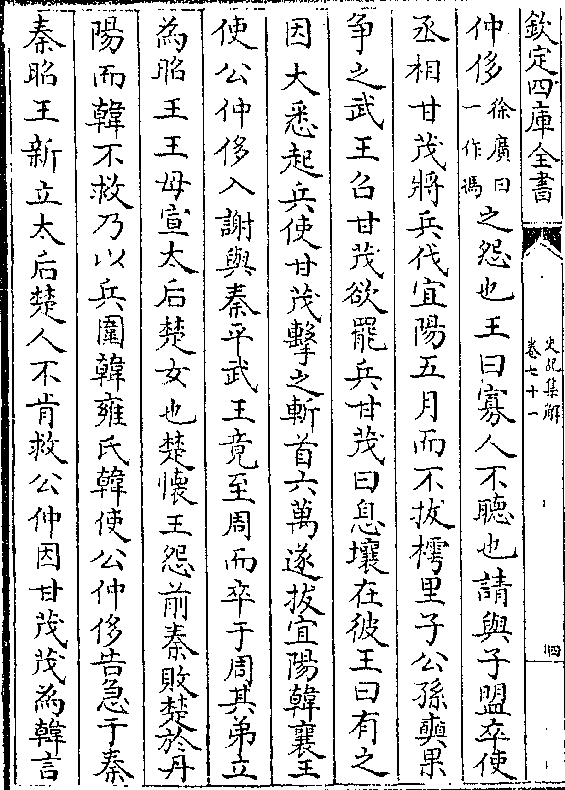 欽定四庫全書
史記集解
卷七十一
四
仲侈徐廣曰一作馮之怨也王曰寡人不聽也請與子盟卒使
丞相甘茂將兵伐宜陽五月而不拔樗里子公孫奭果
争之武王召甘茂欲罷兵甘茂曰息壤在彼王曰有之
因大悉起兵使甘茂擊之斬首六萬遂拔宜陽韓襄王
使公仲侈入謝與秦平武王竟至周而卒于周其弟立
為昭王王母宣太后楚女也楚懷王怨前秦敗楚於丹
陽而韓不救乃以兵圍韓雍氏韓使公仲侈告急于秦
秦昭王新立太后楚人不肯救公仲因甘茂茂為韓言